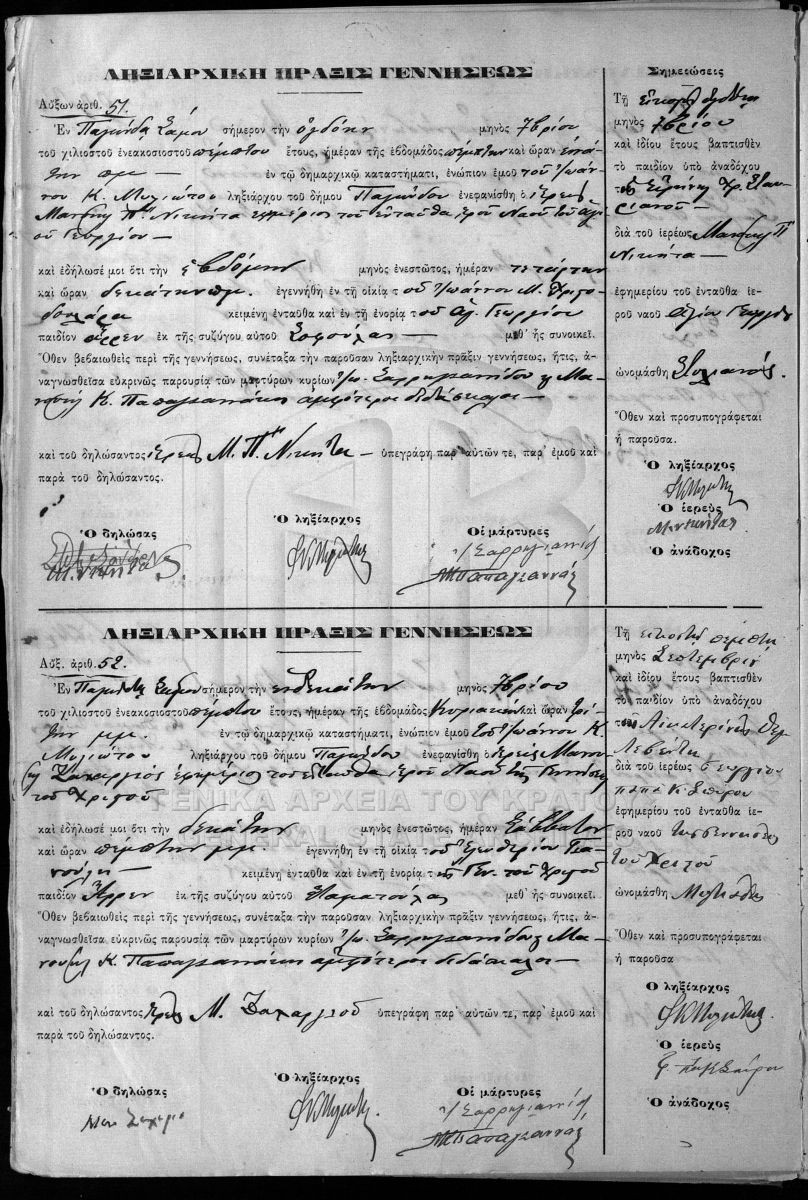 ΛΗΞΙΑΡΧΙΚΗ ΠΡΑΞΙΣ ΓΕΝΝΗΣΕΩΣ
Αὔξων ἀριθ. 51.
Ἐν Παγώνδα Σάμου σήμερον τὴν ὀγδόην μηνὸς 7βρίου
τοῦ χιλιοστοῦ ἐνεακοσιοστοῦ πέμπτου ἔτους, ἡμέραν τῆς ἑβδομάδος πέμπτην καὶ ὥραν ἐνά-
την πμ. ἐν τῷ δημαρχικῷ καταστήματι, ἐνώπιον ἐμοῦ τοῦ Ἰωάν-
νου Κ. ληξιάρχου τοῦ δήμου Παγώνδου ἐνεφανίσθη ὁ ἱερεὺς
Νικήτα ἐφημέριος τοῦ ἐνταῦθα ἱεροῦ Ναοῦ τοῦ Ἁγί-
ου Γεωργίου
καὶ ἐδήλωσέ μοι ὅτι τὴν ἑβδόμην μηνὸς ἐνεστῶτος, ἡμέραν τετάρτην
καὶ ὥραν δεκάτην πμ. ἐγεννήθη ἐν τῇ οἰκίᾳ τοῦ Ἰωάννου Μ. Χριστο-
δουλάρα κειμένῃ ἐνταῦθα καὶ ἐν τῇ ἐνορίᾳ τοῦ Ἁγ. Γεωργίου
παιδίον ἄρρεν ἐκ τῆς συζύγου αὐτοῦ Σοφούλας μεθ' ἧς συνοικεῖ.
Ὅθεν βεβαιωθεὶς περὶ τῆς γεννήσεως, συνέταξα τὴν παροῦσαν ληξιαρχικὴν πρᾶξιν γεννήσεως, ἥτις, ἀ-
ναγνωσθεῖσα εὐκρινῶς παρουσίᾳ τῶν μαρτύρων κυρίων Ἰω. Σαρρηγιαννίδου κ Μα-
Κ. ἀμφότεροι διδάσκαλοι
καὶ τοῦ δηλώσαντος ἱερέως Μ. Νικήτα ὑπεγράφη παρ' αὐτῶν τε, παρ' ἐμοῦ καὶ
παρὰ τοῦ δηλώσαντος.
Ὁ δηλώσας
Ὁ ληξίαρχος
Οἱ μάρτυρες
Μ. Νικήτας
Σημειώσεις
Τῇ εἰκοστῇ
μηνὸς 7βρίου
καὶ ἰδίου ἔτους βαπτισθὲν
τὸ παιδίον ὑπὸ ἀναδόχου
τῆς Εἰρήνης
διὰ τοῦ ἱερέως
Νικήτα
ἐφημερίου τοῦ ἐνταῦθα ἱε-
ροῦ ναοῦ Ἁγίου Γεωργίου
ὠνομάσθη Στυλιανός
Ὅθεν καὶ προσυπογράφεται
ἡ παροῦσα.
Ὁ ληξίαρχος
Ὁ ἱερεὺς
Ὁ ἀνάδοχος
ΛΗΞΙΑΡΧΙΚΗ ΠΡΑΞΙΣ ΓΕΝΝΗΣΕΩΣ
Αὔξ. ἀριθ. 52.
Ἐν Παγώνδα Σάμου σήμερον τὴν ἑνδεκάτην μηνὸς 7βρίου
τοῦ χιλιοστοῦ ἐνεακοσιοστοῦ πέμπτου ἔτους, ἡμέραν τῆς ἑβδομάδος Κυριακὴν καὶ ὥραν τρί-
την μμ. ἐν τῷ δημαρχικῷ καταστήματι, ἐνώπιον ἐμοῦ τοῦ Ἰωάννου Κ.
ληξιάρχου τοῦ δήμου Παγώνδου ἐνεφανίσθη ὁ ἱερεὺς Μανο-
ἐφημέριος τοῦ ἐνταῦθα ἱεροῦ Ναοῦ τῆς Γεννήσεως
τοῦ Χριστοῦ
ΓΕΝΙΚΑ ΑΡΧΕΙΑ ΤΟΥ ΚΡΑΤΟΥΣ
καὶ ἐδήλωσέ μοι ὅτι τὴν δεκάτην μηνὸς ἐνεστῶτος, ἡμέραν Σάββατον
καὶ ὥραν πέμπτην μμ. ἐγεννήθη ἐν τῇ οἰκίᾳ τοῦ Ἐλευθερίου
κειμένῃ ἐνταῦθα καὶ ἐν τῇ ἐνορίᾳ τῆς Γεν. τοῦ Χριστοῦ
παιδίον Ἄρρεν ἐκ τῆς συζύγου αὐτοῦ Σταματούλας μεθ' ἧς συνοικεῖ.
Ὅθεν βεβαιωθεὶς περὶ τῆς γεννήσεως, συνέταξα τὴν παροῦσαν ληξιαρχικὴν πρᾶξιν γεννήσεως, ἥτις, ἀ-
ναγνωσθεῖσα εὐκρινῶς παρουσίᾳ τῶν μαρτύρων κυρίων Ἰω. Σαρρηγιαννίδου κ Μα-
Κ. ἀμφότεροι διδάσκαλοι
καὶ τοῦ δηλώσαντος ἱερέως Μ. ὑπεγράφη παρ' αὐτῶν τε, παρ' ἐμοῦ καὶ
παρὰ τοῦ δηλώσαντος.
Ὁ δηλώσας
Ὁ ληξίαρχος
Οἱ μάρτυρες
Τῇ εἰκοστῇ πέμπτῃ
μηνὸς Σεπτεμβρίου
καὶ ἰδίου ἔτους βαπτισθὲν
τὸ παιδίον ὑπὸ ἀναδόχου
Αἰκατερίνης
διὰ τοῦ ἱερέως Γεωργίου
παπᾶ Κ. Σπύρου
ἐφημερίου τοῦ ἐνταῦθα ἱε-
ροῦ ναοῦ τῆς Γεννήσεως
τοῦ Χριστοῦ
ὠνομάσθη
Ὅθεν καὶ προσυπογράφεται
ἡ παροῦσα
Ὁ ληξίαρχος
Ὁ ἱερεὺς
Ὁ ἀνάδοχος